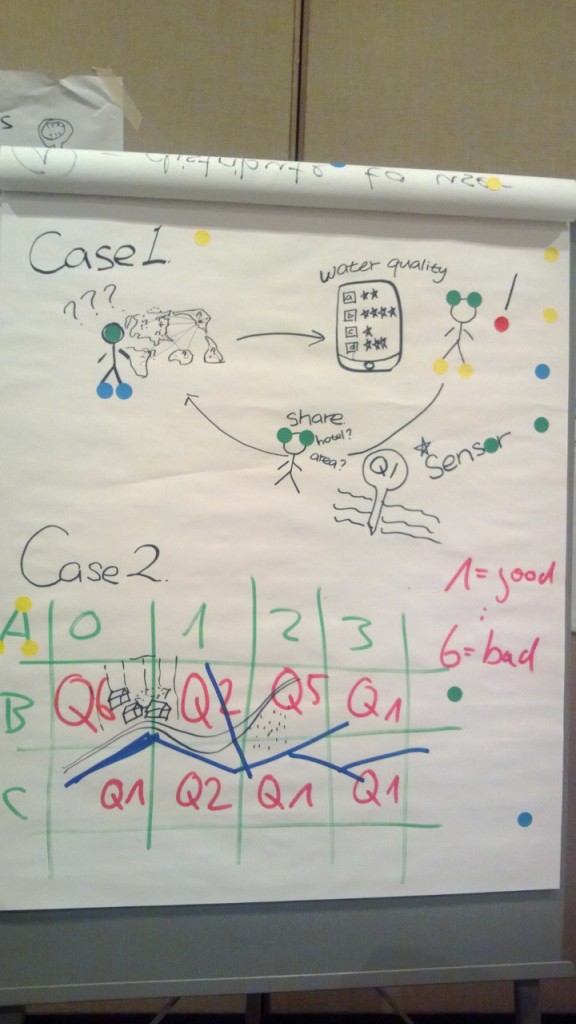 s
Case 1.
water quality
???
a ★★
b ★★★★
c ★
d ★★★
!
share
hotel?
area?
Q1
* Sensor
Case 2.
1 = good
:
6 = bad
A 0 1 2 3
B Q6 Q2 Q5 Q1
C Q1 Q2 Q1 Q1